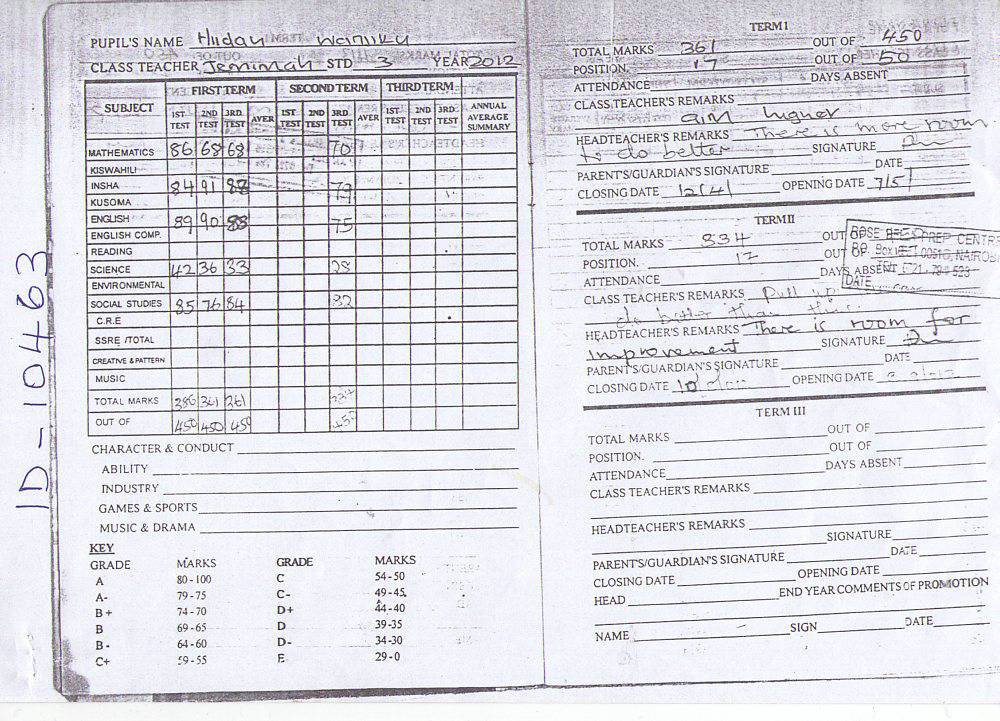 ID-10463
PUPIL'S NAME Hudah Wanjiku
CLASS TEACHER Jemimah STD 3 YEAR 2012
SUBJECT FIRST TERM SECOND TERM THIRD TERM ANNUAL AVERAGE SUMMARY
1ST TEST 2ND TEST 3RD TEST AVER 1ST TEST 2ND TEST 3RD TEST AVER 1ST TEST 2ND TEST 3RD TEST
MATHEMATICS 86 68 68 70
KISWAHILI
INSHA 84 91 88 79
KUSOMA
ENGLISH 89 90 88 75
ENGLISH COMP.
READING
SCIENCE 42 36 33 28
ENVIRONMENTAL
SOCIAL STUDIES 85 76 84 82
C.R.E
SSRE /TOTAL
CREATIVE & PATTERN
MUSIC
TOTAL MARKS 386 361 361 334
OUT OF 450 450 450 450
CHARACTER & CONDUCT
ABILITY
INDUSTRY
GAMES & SPORTS
MUSIC & DRAMA
KEY
GRADE MARKS GRADE MARKS
A 80-100 C 54-50
A- 79-75 C- 49-45
B+ 74-70 D+ 44-40
B 69-65 D 39-35
B- 64-60 D- 34-30
C+ 59-55 E 29-0
TERM I
TOTAL MARKS 361 OUT OF 450
POSITION. 17 OUT OF 50
ATTENDANCE DAYS ABSENT
CLASS TEACHER'S REMARKS
aim higher
HEADTEACHER'S REMARKS There is more room
to do better SIGNATURE
PARENT'S/GUARDIAN'S SIGNATURE DATE
CLOSING DATE 12/4/ OPENING DATE 7/5/
TERM II
TOTAL MARKS 334 OUT OF
POSITION. 17 OUT OF
ATTENDANCE DAYS ABSENT
PREP CENTRE
Box 00516, NAIROBI
DATE
CLASS TEACHER'S REMARKS Pull up
do better than this
HEADTEACHER'S REMARKS There is room for
Improvement SIGNATURE
PARENT'S/GUARDIAN'S SIGNATURE DATE
CLOSING DATE OPENING DATE
TERM III
TOTAL MARKS OUT OF
POSITION. OUT OF
ATTENDANCE DAYS ABSENT
CLASS TEACHER'S REMARKS
HEADTEACHER'S REMARKS
SIGNATURE
PARENT'S/GUARDIAN'S SIGNATURE DATE
CLOSING DATE OPENING DATE
HEAD END YEAR COMMENTS OF PROMOTION
NAME SIGN DATE